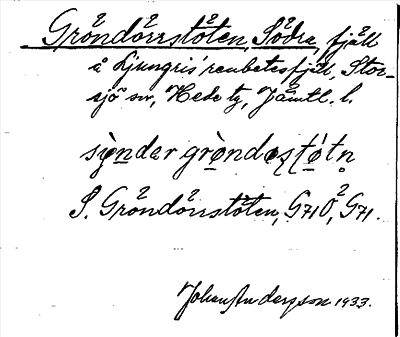 Gröndörrstöten, Södra, fjäll
å Ljungris' renbetesfjäll, Stor-
sjö sn, Hede tg, Jämtl. l.
S. Gröndörrstöten, G71Ö, G71.
Johan Andersson 1933.